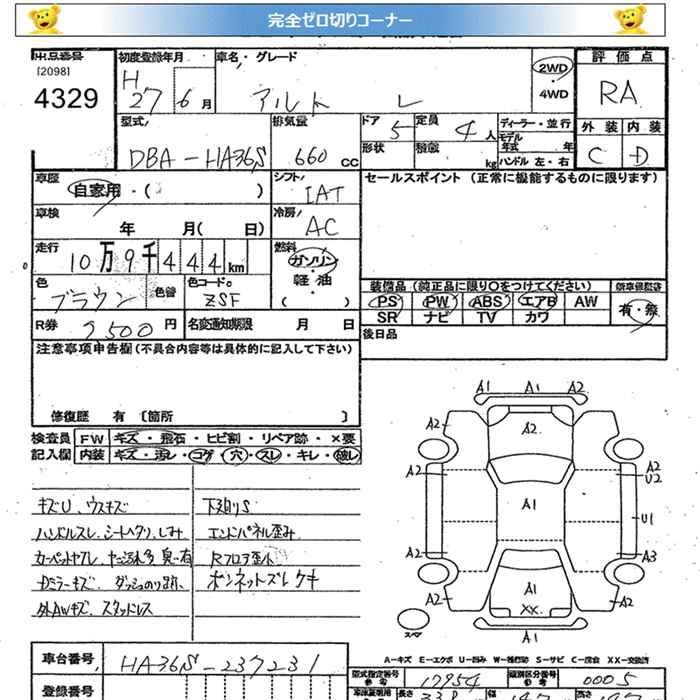 完全ゼロ切りコーナー
出品番号 初度登録年月 車名・グレード 評価点
[2098]
4329 H27 6月 アルト L 2WD RA
4WD
型式 排気量 ドア 定員 ディーラー・並行 外装 内装
DBA-HA36S 660 CC 5 4人 モデル年式 年 C D
形状 積載 kg ハンドル 左・右
車歴 シフト セールスポイント (正常に機能するものに限ります)
自家用・( ) IAT
車検 冷房
年 月( 日) AC
走行 燃料
10万9千444km ガソリン
軽油
( )
色 色替 色コードNo. 装備品 (純正品に限り○をつけてください) 新車保証書
ブラウン ZSF PS PW ABS エアB AW 有・無
SR ナビ TV カワ
R券 9500円 名変通知期限 月 日 後日品
注意事項申告欄 (不具合内容等は具体的に記入して下さい)
修復歴 有 〔箇所 〕
検査員 FW キズ・飛石・ヒビ割・リペア跡・×要
記入欄 内装 キズ・汚レ・コゲ・穴・スレ・キレ・破レ
キズU、ウスキズ 下廻りS
ハンドルスレ、シートヘタリ、しみ エンドパネル歪み
カーペットヤブレ Rフロア歪み
Dミラーキズ ボンネットズレ
外AWキズ、スタッドレス
A1 A1 A2
A2 A2 A2
A2 A2
U2
A1 U1
A2 A3
A2 A1 A2
XX
A1
スペア
A-キズ E-エクボ U-凹み W-補修跡 S-サビ C-腐食 XX-交換済
車台番号 HA36S-237231
型式指定番号 17954 類別区分番号 0005
登録番号 長さ 幅 高さ